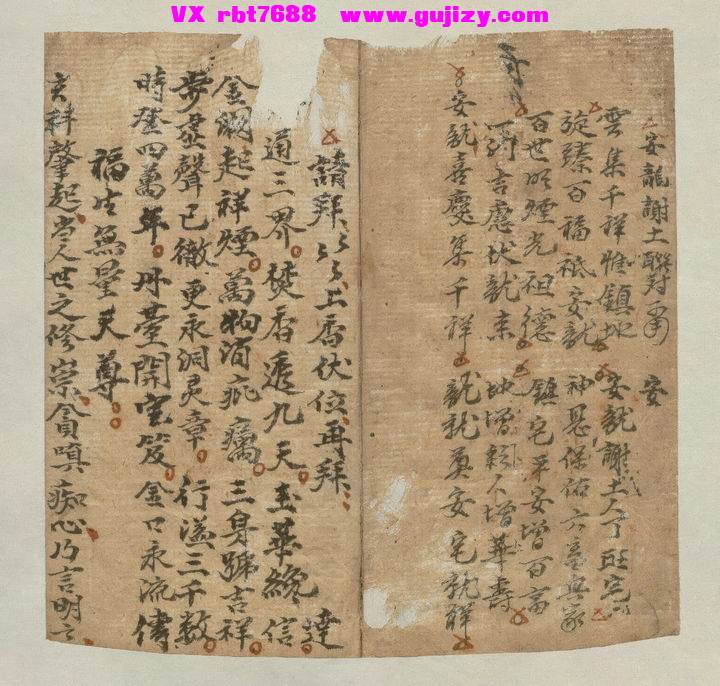 VX rbt7688 www.gujizy.com
安龍謝土聯對 安
雲集千祥惟鎮地 安龍謝土人丁旺宅
旋臻百福祇安龍 神恩保佑六畜興家
百世明煙光祖德 鎮宅平安增百富
吉慶伏龍来 地增人增華壽
安龍喜慶集千祥 龍龍奠安宅龍祥
請拜 以以上香伏位再拜
達
通三界 焚香透九天 玉華 信
金 起祥煙 萬物消疵癘 三身歸吉祥
步虛聲已徹 更永洞灵章 行滿三千數
時登四萬年 丹臺開寶笈 金口永流傳
福生無量天尊
吉祥肇起 当人世之修崇 貪嗔痴心乃言明